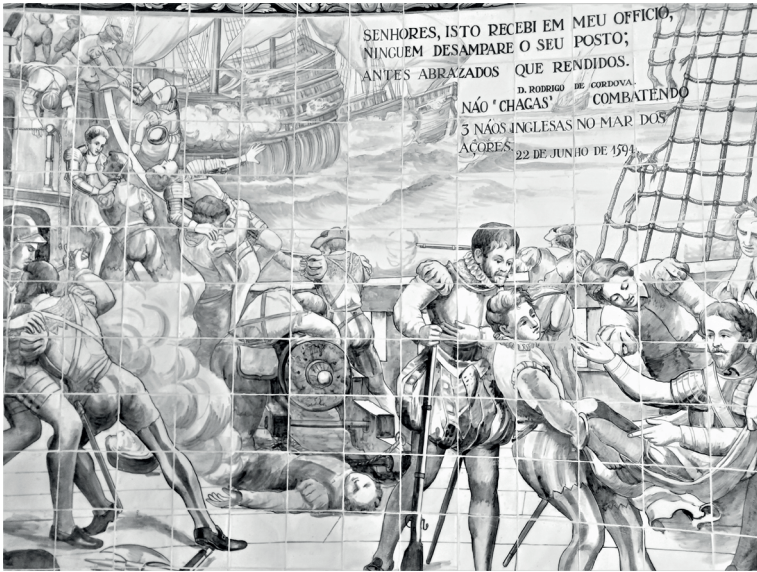 SENHORES, ISTO RECEBI EM MEU OFFICIO,
NINGUEM DESAMPARE O SEU POSTO;
ANTES ABRAZADOS QUE RENDIDOS.
D. RODRIGO DE CORDOVA.
NÁO "CHAGAS" COMBATENDO
3 NÁOS INGLESAS NO MAR DOS
AÇORES. 22 DE JUNHO DE 1594.